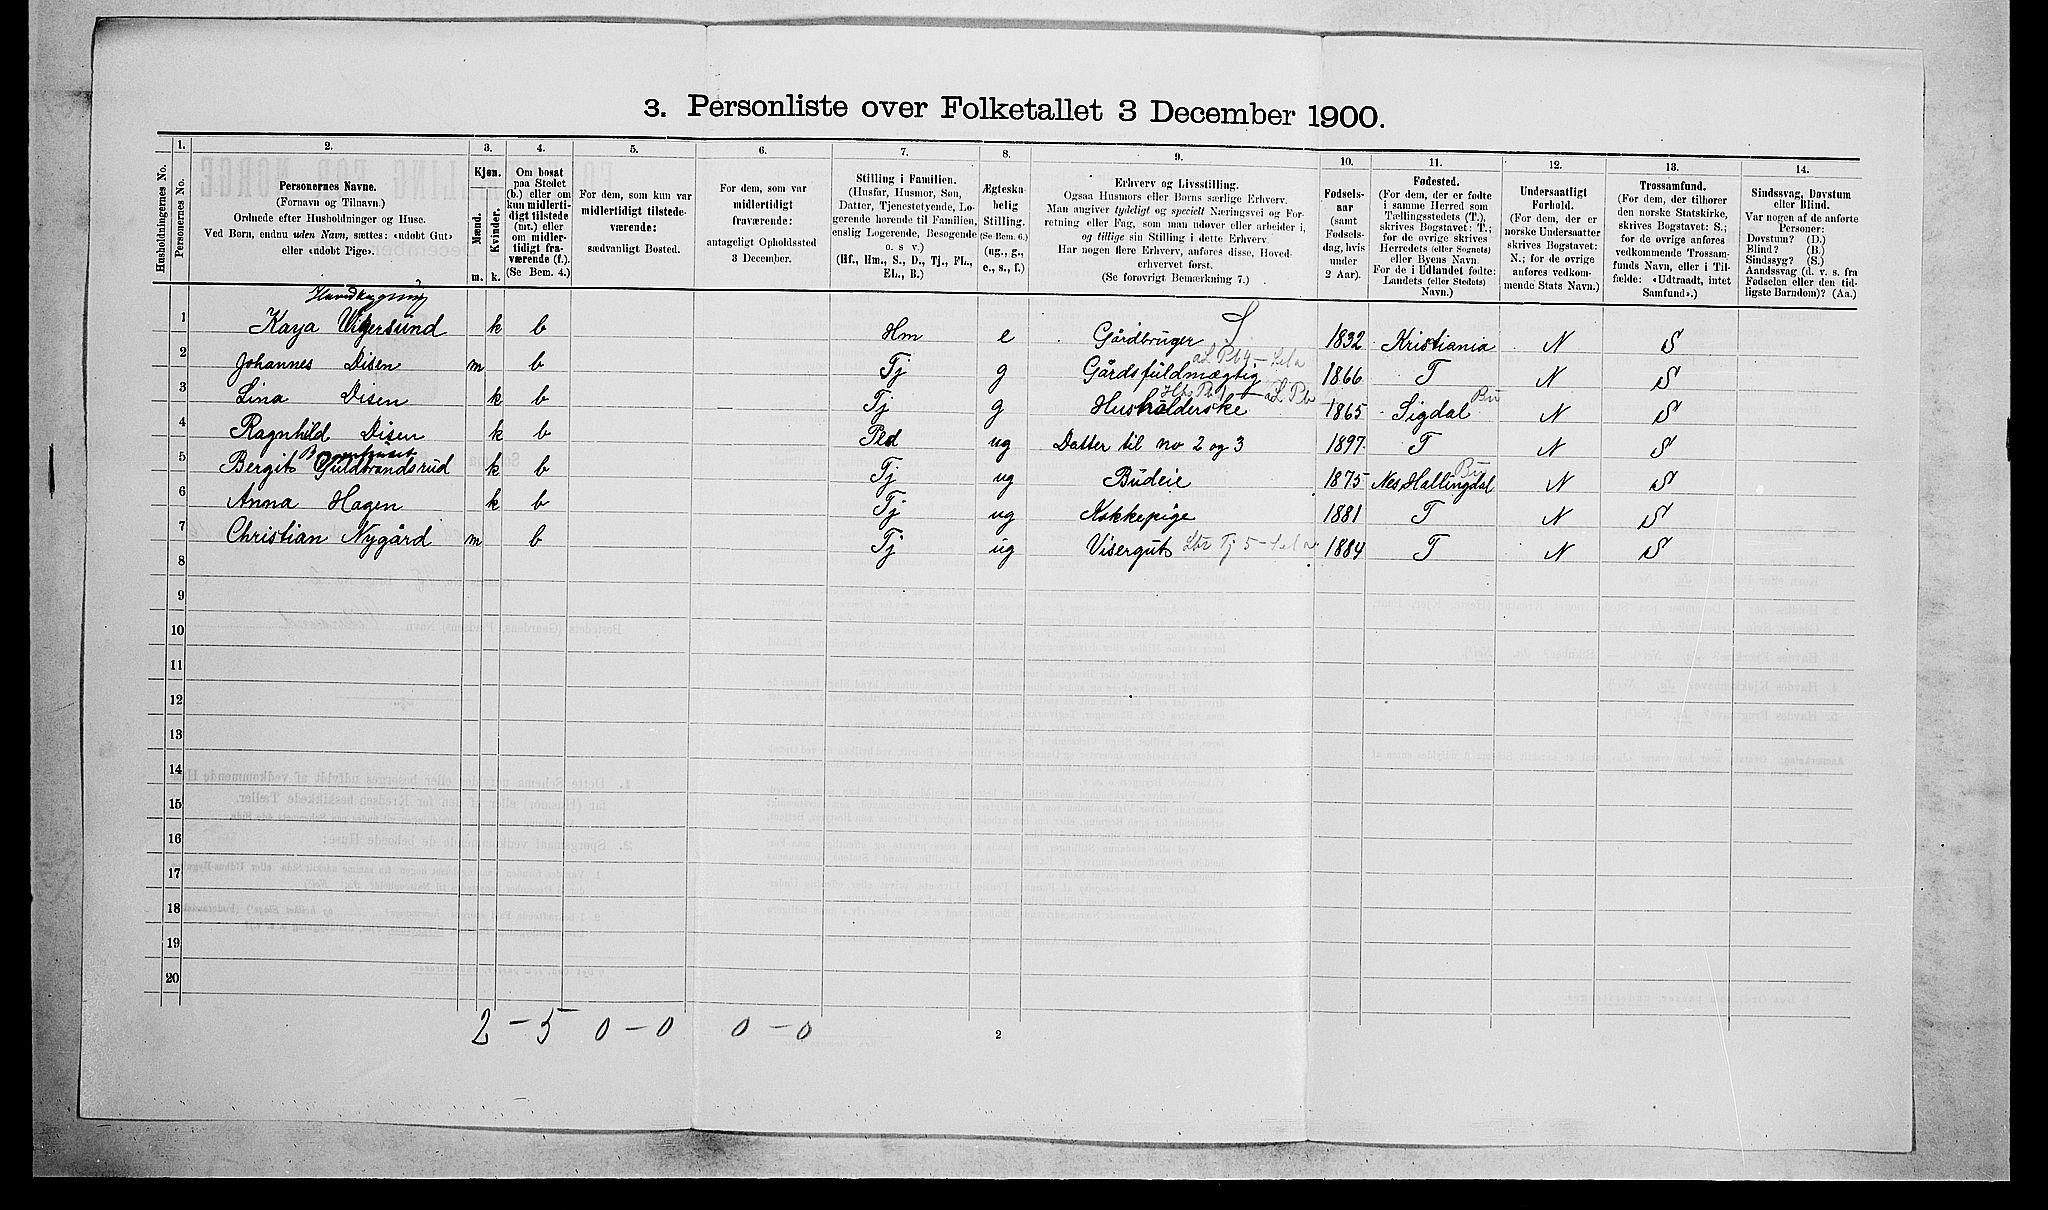 3. Personliste over Folketallet 3 December 1900.
Husholdningernes No.
1. Personernes No.
2. Personernes Navne.
(Fornavn og Tilnavn.)
Ordnede efter Husholdninger og Huse.
Ved Børn, endnu uden Navn, sættes: «udøbt Gut»
eller «udøbt Pige».
3. Kjøn.
Mænd. Kvinder.
m. k.
4. Om bosat
paa Stedet
(b.) eller om
kun midlerti-
digt tilstede
(mt.) eller
om midler-
tidigt fra-
værende (f.).
(Se Bem. 4.)
5. For dem, som kun var
midlertidigt tilstede-
værende:
sædvanligt Bosted.
6. For dem, som var
midlertidigt
fraværende:
antageligt Opholdssted
3 December.
7. Stilling i Familien.
(Husfar, Husmor, Søn,
Datter, Tjenestetyende, Lo-
gerende hørende til Familien,
enslig Logerende, Besøgende
o. s v.)
(Hf., Hm., S., D., Tj., FL.,
EL., B.)
8. Ægteska-
belig
Stilling.
(Se Bem. 6.)
(ug., g.,
e., s., f.)
9. Erhverv og Livsstilling.
Ogsaa Husmors eller Børns særlige Erhverv.
Man angiver tydeligt og specielt Næringsvei og For-
retning eller Fag, som man udøver eller arbeider i,
og tillige sin Stilling i dette Erhverv.
Har nogen flere Erhverv, anføres disse, Hoved-
erhvervet først.
(Se forøvrigt Bemærkning 7.)
10. Fødsels-
aar
(samt
Fødsels-
dag, hvis
under
2 Aar).
11. Fødested.
(For dem, der er fødte
i samme Herred som
Tællingsstedets (T.),
skrives Bogstavet: T.;
for de øvrige skrives
Herredets (eller Sognets)
eller Byens Navn.
For de i Udlandet fødte:
Landets (eller Stedets)
Navn.)
12. Undersaatligt
Forhold.
(For dem, der er
norske Undersaatter
skrives Bogstavet:
N.; for de øvrige
anføres vedkom-
mende Stats Navn.)
13. Trossamfund.
(For dem, der tilhører
den norske Statskirke,
skrives Bogstavet: S.;
for de øvrige anføres
vedkommende Trossam-
funds Navn, eller i Til-
fælde: «Udtraadt, intet
Samfund».)
14. Sindssvag, Døvstum
eller Blind.
Var nogen af de anførte
Personer:
Døvstum? (D.)
Blind? (B.)
Sindssyg? (S.)
Aandssvag (d. v. s. fra
Fødselen eller den tid-
ligste Barndom)? (Aa.)
1 Kaya Vigersund k b Hm e Gårdbruger 1832 Kristiania N S
2 Johannes Disen m b Tj g Gårdsfuldmægtig 1866 T N S
3 Lina Disen k b Tj g Husholderske 1865 Sigdal Bu N S
4 Ragnhild Disen k b Pld ug Datter til no 2 og 3 1897 T N S
5 Bergit Guldbrandsrud k b Tj ug Budeie 1875 Nes Hallingdal Bu N S
6 Anna Hagen k b Tj ug Kokkepige 1881 T N S
7 Christian Nygård m b Tj ug Visergut 1884 T N S
8
9
10
11
12
13
14
15
16
17
18
19
20
2 – 5 0 – 0 0 – 0
2